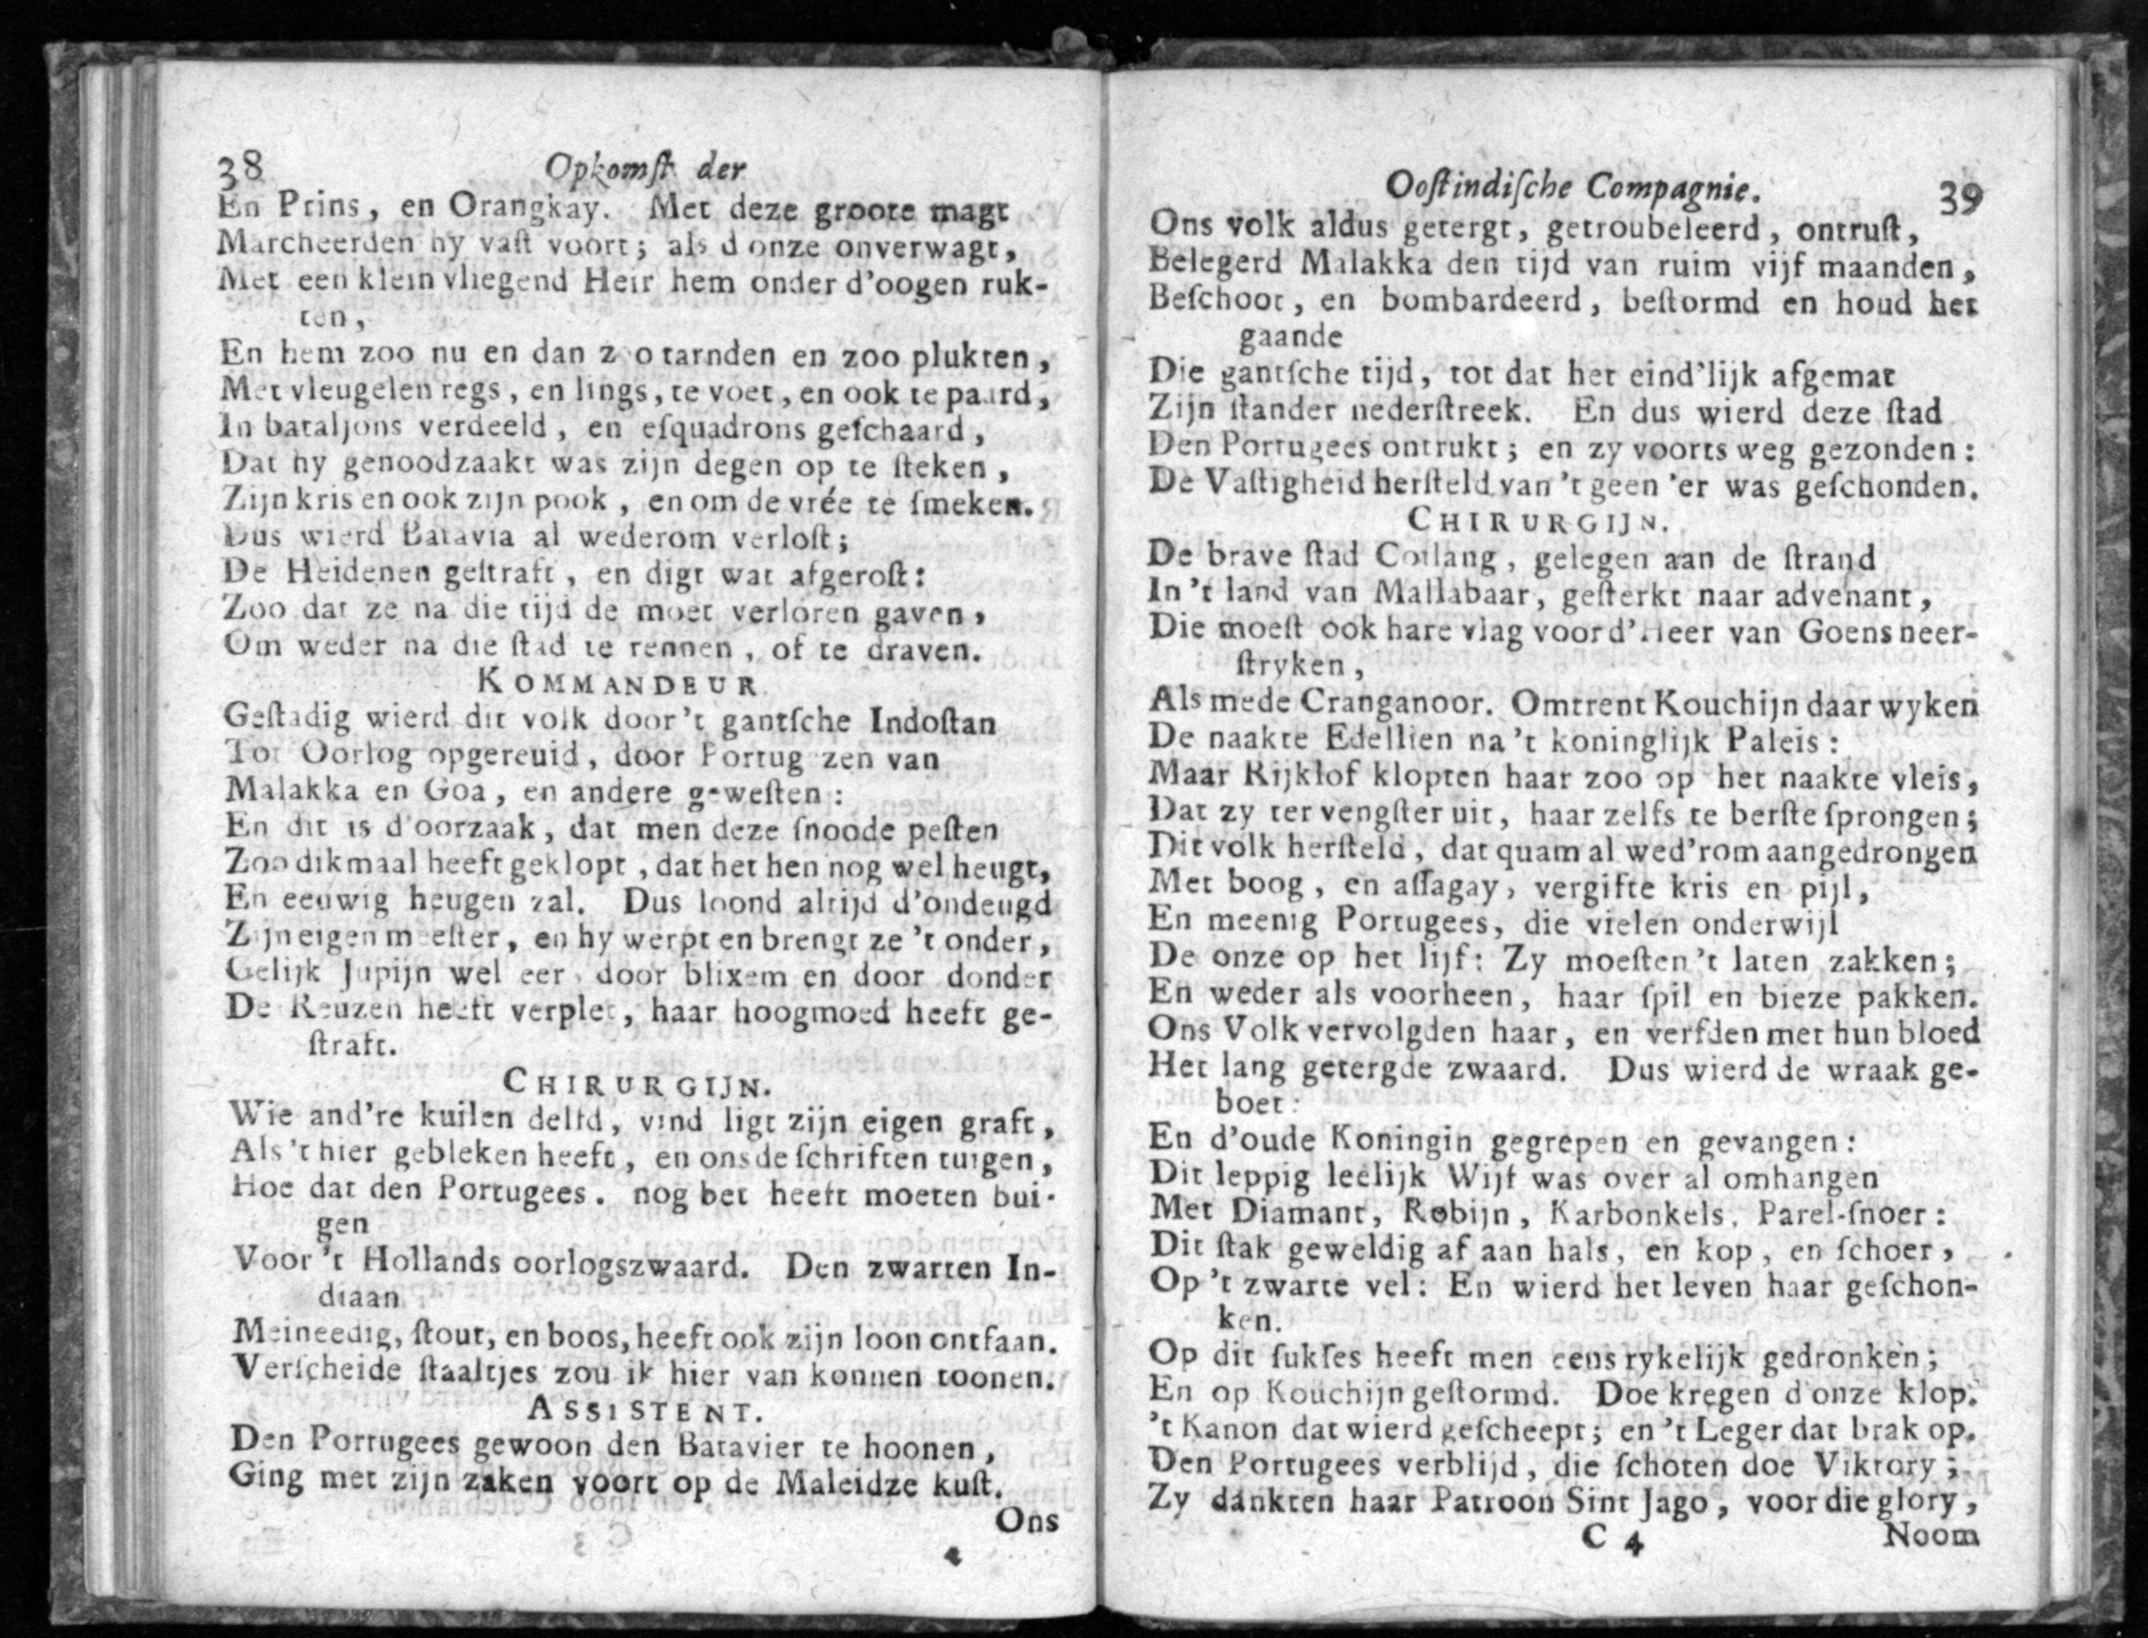 38 Opkomſt der
En Prins, en Orangkay. Met deze groote magt
Marcheerden hy vaſt voort; als d'onze onverwagt,
Met een klein vliegend Heir hem onder d'oogen ruk-
ten,
En hem zoo nu en dan zoo tarnden en zoo plukten,
Met vleugelen regs, en lings, te voet, en ook te paard,
In bataljons verdeeld, en eſquadrons geſchaard,
Dat hy genoodzaakt was zijn degen op te ſteken,
Zijn kris en ook zijn pook, en om de vrée te ſmeken.
Dus wierd Batavia al wederom verloſt;
De Heidenen geſtraft, en digt wat afgeroſt:
Zoo dat ze na die tijd de moet verloren gaven,
Om weder na die ſtad te rennen, of te draven.
KOMMANDEUR.
Geſtadig wierd dit volk door 't gantſche Indoſtan
Tot Oorlog opgereuid, door Portug'zen van
Malakka en Goa, en andere geweſten:
En dit is d'oorzaak, dat men deze ſnoode peſten
Zoo dikmaal heeft geklopt, dat het hen nog wel heugt,
En eeuwig heugen zal. Dus loond altijd d'ondeugd
Zijn eigen meeſter, en hy werpt en brengt ze 't onder,
Gelijk Jupijn wel eer, door blixem en door donder
De Reuzen heeft verplet, haar hoogmoed heeft ge-
ſtraft.
CHIRURGIJN.
Wie and're kuilen delfd, vind ligt zijn eigen graft,
Als 't hier gebleken heeft, en ons de ſchriften tuigen,
Hoe dat den Portugees. nog bet heeft moeten bui-
gen
Voor 't Hollands oorlogszwaard. Den zwarten In-
diaan
Meineedig, ſtout, en boos, heeft ook zijn loon ontfaan.
Verſcheide ſtaaltjes zou ik hier van konnen toonen.
ASSISTENT.
Den Portugees gewoon den Batavier te hoonen,
Ging met zijn zaken voort op de Maleidze kuſt.
Ons
4
Ooſtindiſche Compagnie. 39
Ons volk aldus getergt, getroubeleerd, ontruſt,
Belegerd Malakka den tijd van ruim vijf maanden,
Beſchoot, en bombardeerd, beſtormd en houd het
gaande
Die gantſche tijd, tot dat het eind'lijk afgemat
Zijn ſtander nederſtreek. En dus wierd deze ſtad
Den Portugees ontrukt; en zy voorts weg gezonden:
De Vaſtigheid herſteld van 't geen 'er was geſchonden.
CHIRURGIJN.
De brave ſtad Coilang, gelegen aan de ſtrand
In 't land van Mallabaar, geſterkt naar advenant,
Die moeſt ook hare vlag voor d'Heer van Goens neer-
ſtryken,
Als mede Cranganoor. Omtrent Kouchijn daar wyken
De naakte Edellien na 't koninglijk Paleis:
Maar Rijklof klopten haar zoo op het naakte vleis,
Dat zy ter vengſter uit, haar zelfs te berſte ſprongen;
Dit volk herſteld, dat quam al wed'rom aangedrongen
Met boog, en aſſagay, vergifte kris en pijl,
En meenig Portugees, die vielen onderwijl
De onze op het lijf: Zy moeſten 't laten zakken;
En weder als voorheen, haar ſpil en bieze pakken.
Ons Volk vervolgden haar, en verfden met hun bloed
Het lang getergde zwaard. Dus wierd de wraak ge-
boet:
En d'oude Koningin gegrepen en gevangen:
Dit leppig leelijk Wijf was over al omhangen
Met Diamant, Robijn, Karbonkels, Parel-ſnoer:
Dit ſtak geweldig af aan hals, en kop, en ſchoer,
Op 't zwarte vel: En wierd het leven haar geſchon-
ken.
Op dit ſukſes heeft men eens rykelijk gedronken;
En op Kouchijn geſtormd. Doe kregen d'onze klop.
't Kanon dat wierd geſcheept; en 't Leger dat brak op.
Den Portugees verblijd, die ſchoten doe Viktory;
Zy dankten haar Patroon Sint Jago, voor die glory,
C 4 Noom